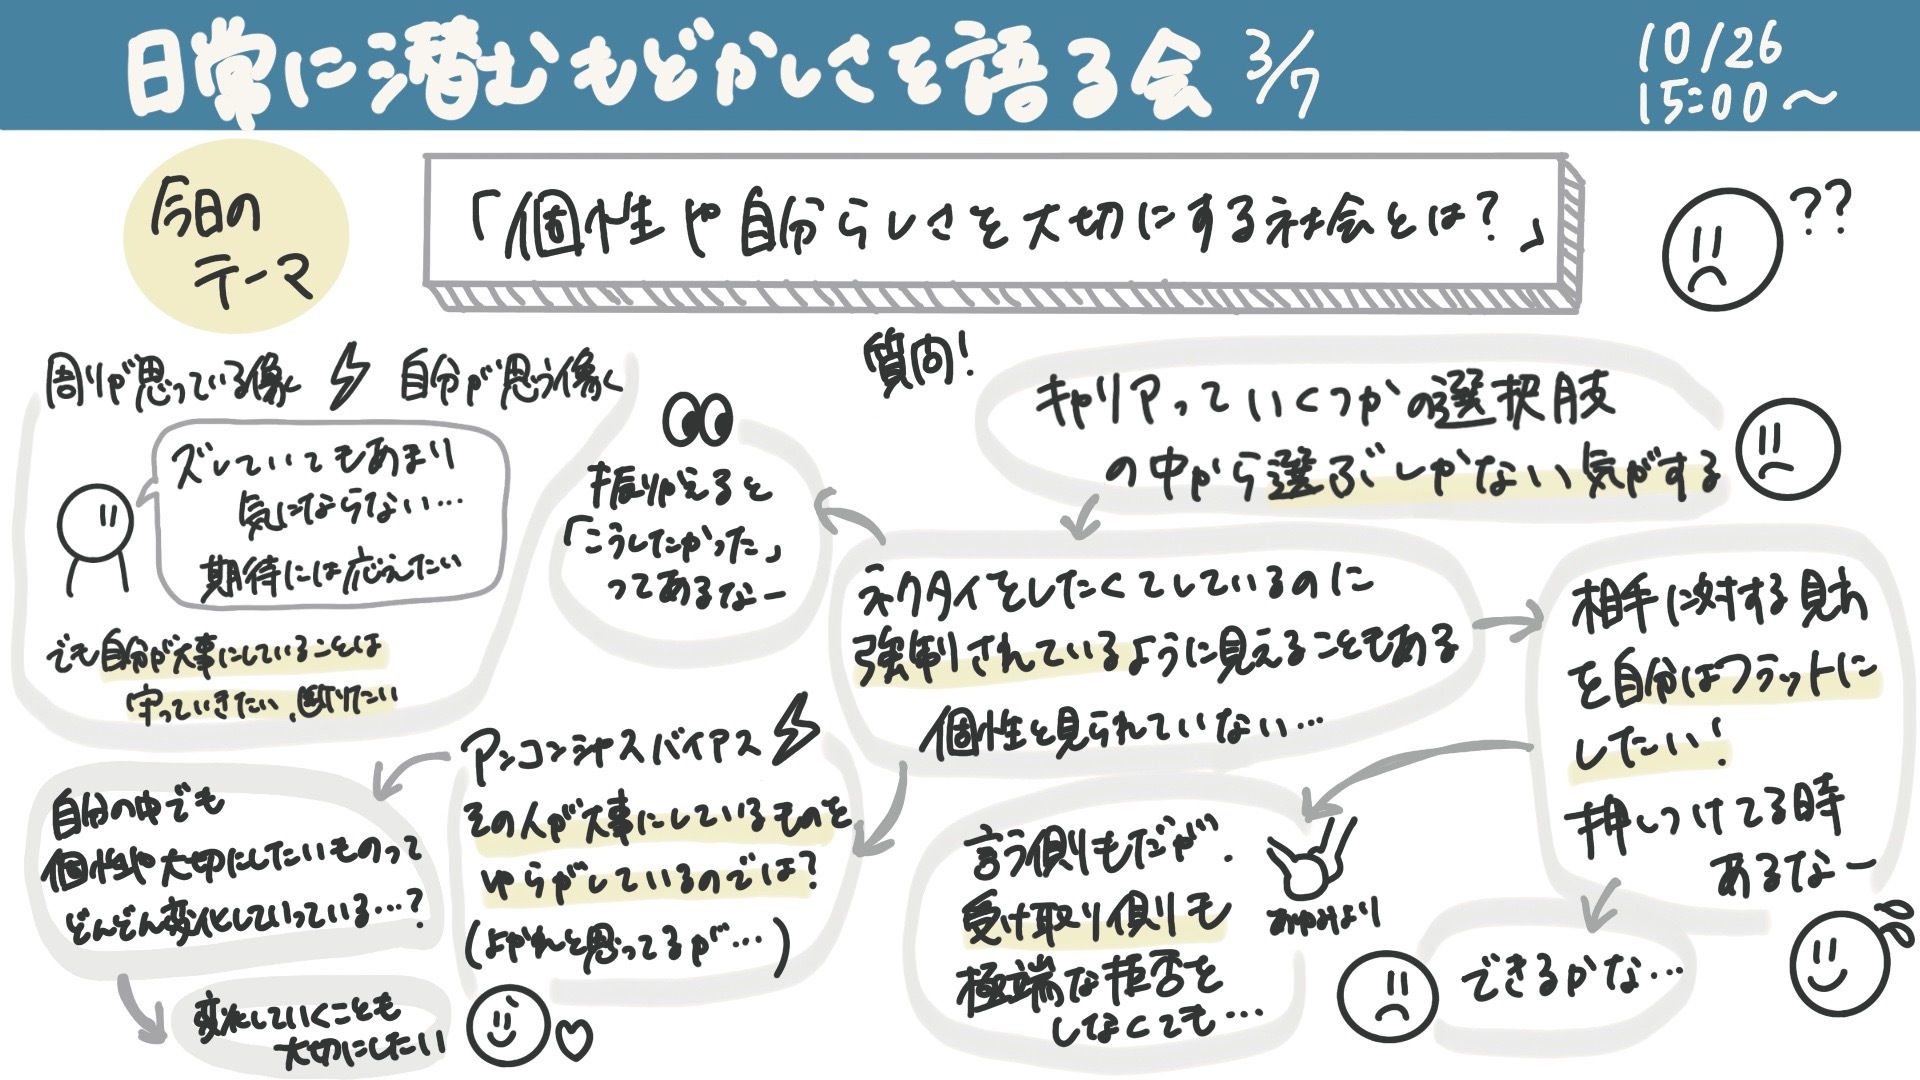 日常に潜むもどかしさを語る会 3/7
10/26
15:00〜
今日の
テーマ
「個性や自分らしさを大切にする社会とは？」
??
周りが思っている像 自分が思う像
ズレていてもあまり
気にならない…
期待には応えたい
でも自分が大事にしていることは
守っていきたい、断りたい
質問！
キャリアっていくつかの選択肢
の中から選ぶしかない気がする
振りかえると
「こうしたかった」
ってあるなー
ネクタイをしたくてしているのに
強制されているように見えることもある
個性を見られていない…
相手に対する見方
を自分はフラットに
したい！
押しつけてる時
あるなー
できるかな…
言う側もだが、
受け取り側も
極端な拒否を
しなくても…
あゆみより
アンコンシャスバイアス
その人が大事にしているものを
ゆらがしているのでは？
(よかれと思ってるが…)
自分の中でも
個性や大切にしたいものって
どんどん変化していっている…？
変化していくことも
大切にしたい